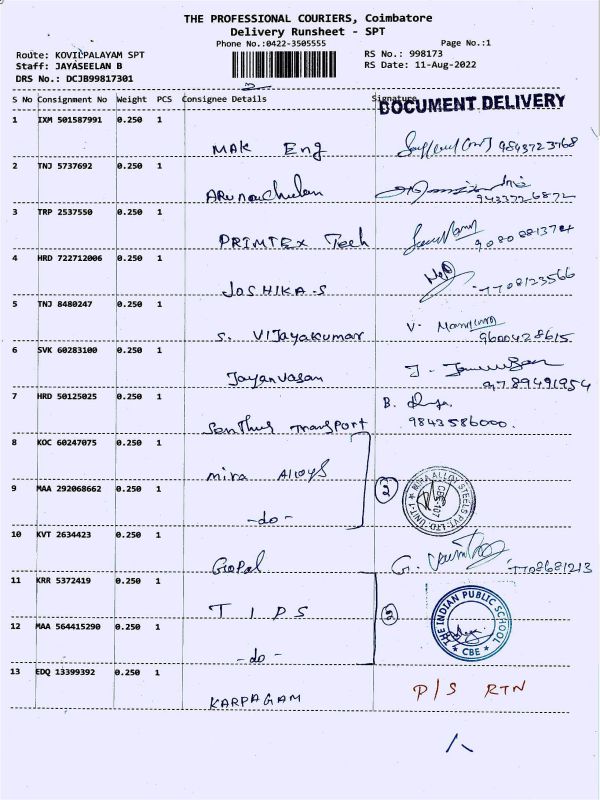 THE PROFESSIONAL COURIERS, Coimbatore
Delivery Runsheet - SPT
Phone No.:0422-3505555 Page No.:1
Route: KOVILPALAYAM SPT RS No.: 998173
Staff: JAYASEELAN B RS Date: 11-Aug-2022
DRS No.: DCJB99817301
S No Consignment No Weight PCS Consignee Details Signature
DOCUMENT DELIVERY
1 IXM 501587991 0.250 1
MAK Eng 9843723768
2 TNJ 5737692 0.250 1
Arunachulam 9433726872
3 TRP 2537550 0.250 1
PRIMTEX Tech 9080881374
4 HRD 722712006 0.250 1
JOSHIKA-S 7708123566
5 TNJ 8480247 0.250 1
S. VIJayakumar V. 9600428615
6 SVK 60283100 0.250 1
Jayanvasan J. 9789491954
7 HRD 50125025 0.250 1
B.
Senthur Transport 9843586000.
8 KOC 60247075 0.250 1
mira Alloys
9 MAA 292068662 0.250 1
2
-do-
10 KVT 2634423 0.250 1
Gopal G. 7708681213
11 KRR 5372419 0.250 1
T I P S
2
THE INDIAN PUBLIC SCHOOL
CBE
12 MAA 564415290 0.250 1
-do-
13 EDQ 13399392 0.250 1
KARPAGAM P/S RTN